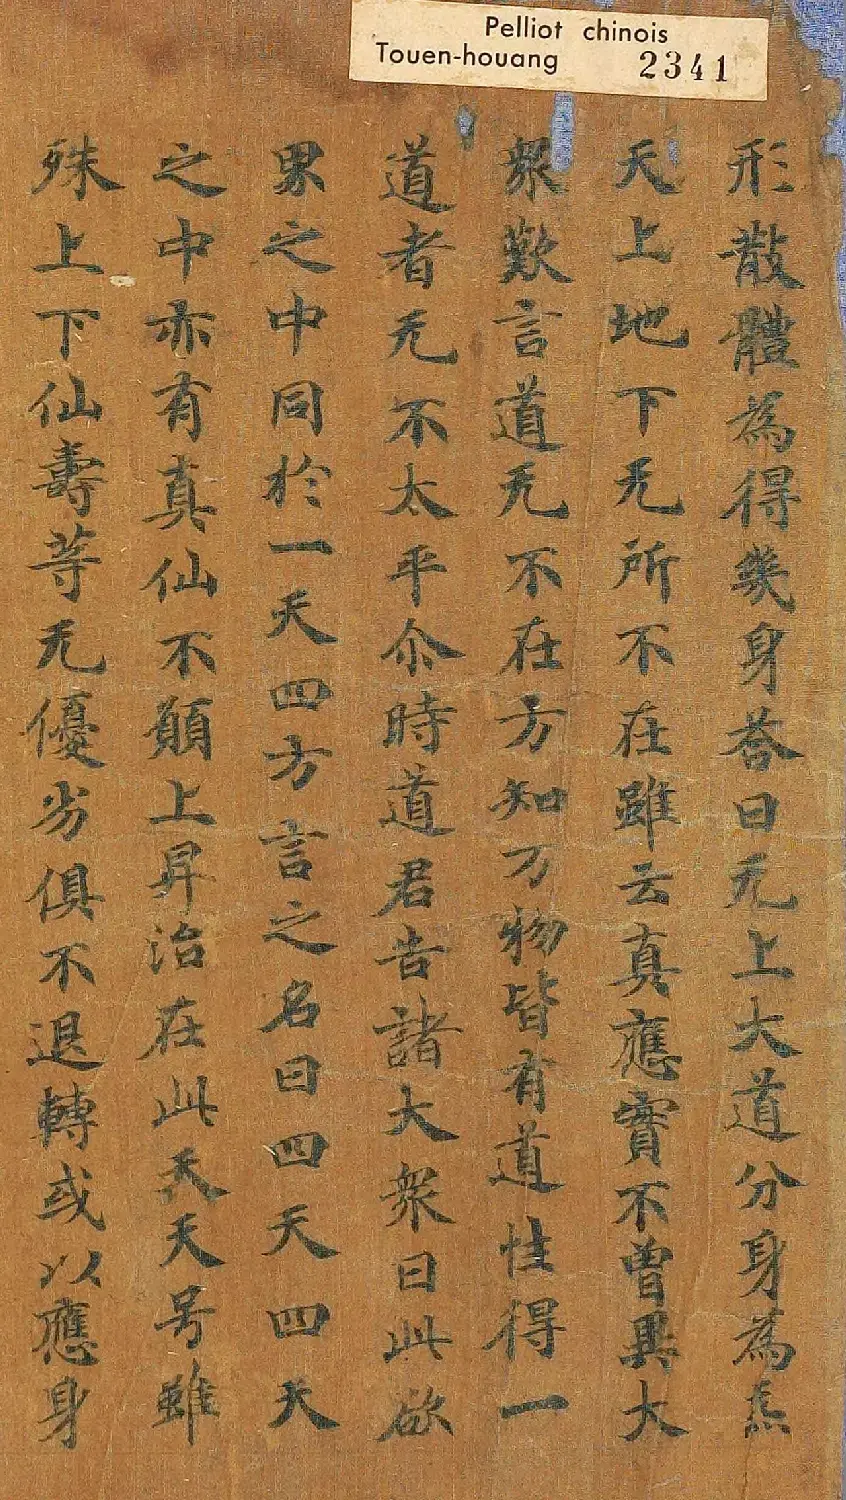 Pelliot chinois
Touen-houang 2341
形散體為得幾身荅曰无上大道分身為炁
天上地下无所不在雖云真應實不曾異大
衆歎言道无不在方知万物皆有道性得一
道者无不太平尒時道君告諸大衆曰此欲
界之中同於一天四方言之名曰四天四天
之中亦有真仙不願上昇治在此天天号雖
殊上下仙壽等无優劣俱不退轉或以應身